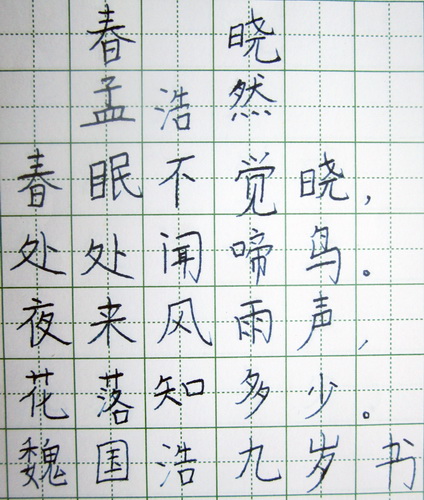 春晓
孟浩然
春眠不觉晓，
处处闻啼鸟。
夜来风雨声，
花落知多少。
魏国浩九岁书